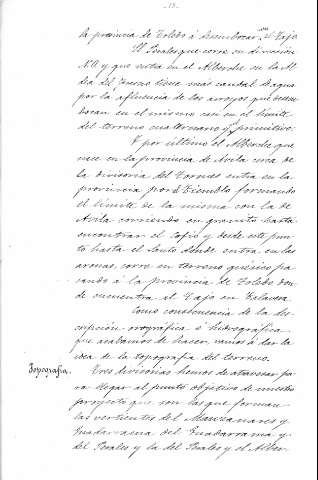 - 13 -
la provincia de Toledo á desembocar en el Tajo
El Perales que corre en direccion
N.O. y que vierte en el Alberche en la Al-
dea del Fresno tiene mas caudal de agua
por la afluencia de los arroyos que desem-
bocan en el mismo con en el límite
del terreno cuaternario y primitivo.
Y por ultimo el Alberche que
nace en la provincia de Avila cerca de
la divisoria del Tormes entra en la
provincia por el Tiemblo formando
el límite de la misma con la de
Avila corriendo en granito hasta
encontrar el Cofio y desde este pun-
to hasta el Santo donde entra en las
arenas, corre en terreno gneisico pa-
sando á la provincia de Toledo don-
de encuentra el Tajo en Talavera
Como consecuencia de la des-
cripción orográfica é hidrográfica
que acabamos de hacer vamos á dar la
idea de la topografia del terreno.
Topografia.
Tres divisorias hemos de atravesar pa-
ra llegar al punto objetivo de nuestro
proyecto que son las que forman
las vertientes del Manzanares y
Guadarrama del Guadarrama y
del Perales y la del Perales y el Alber-